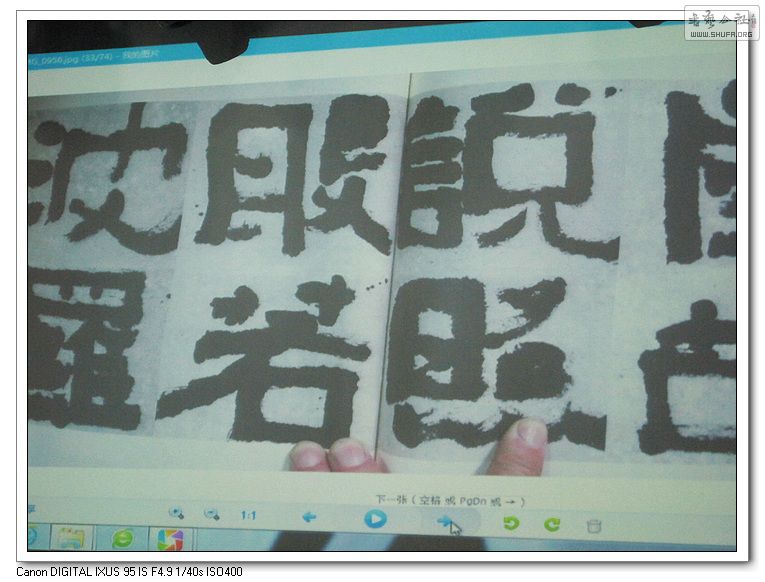 書藝公社
WWW.SHUFA.ORG
MG_0956.jpg (33/74) - 我的图片
說
般若
波羅
下一张 ( 空格 或 PgDn 或 → )
1:1
Canon DIGITAL IXUS 95 IS F4.9 1/40s ISO400